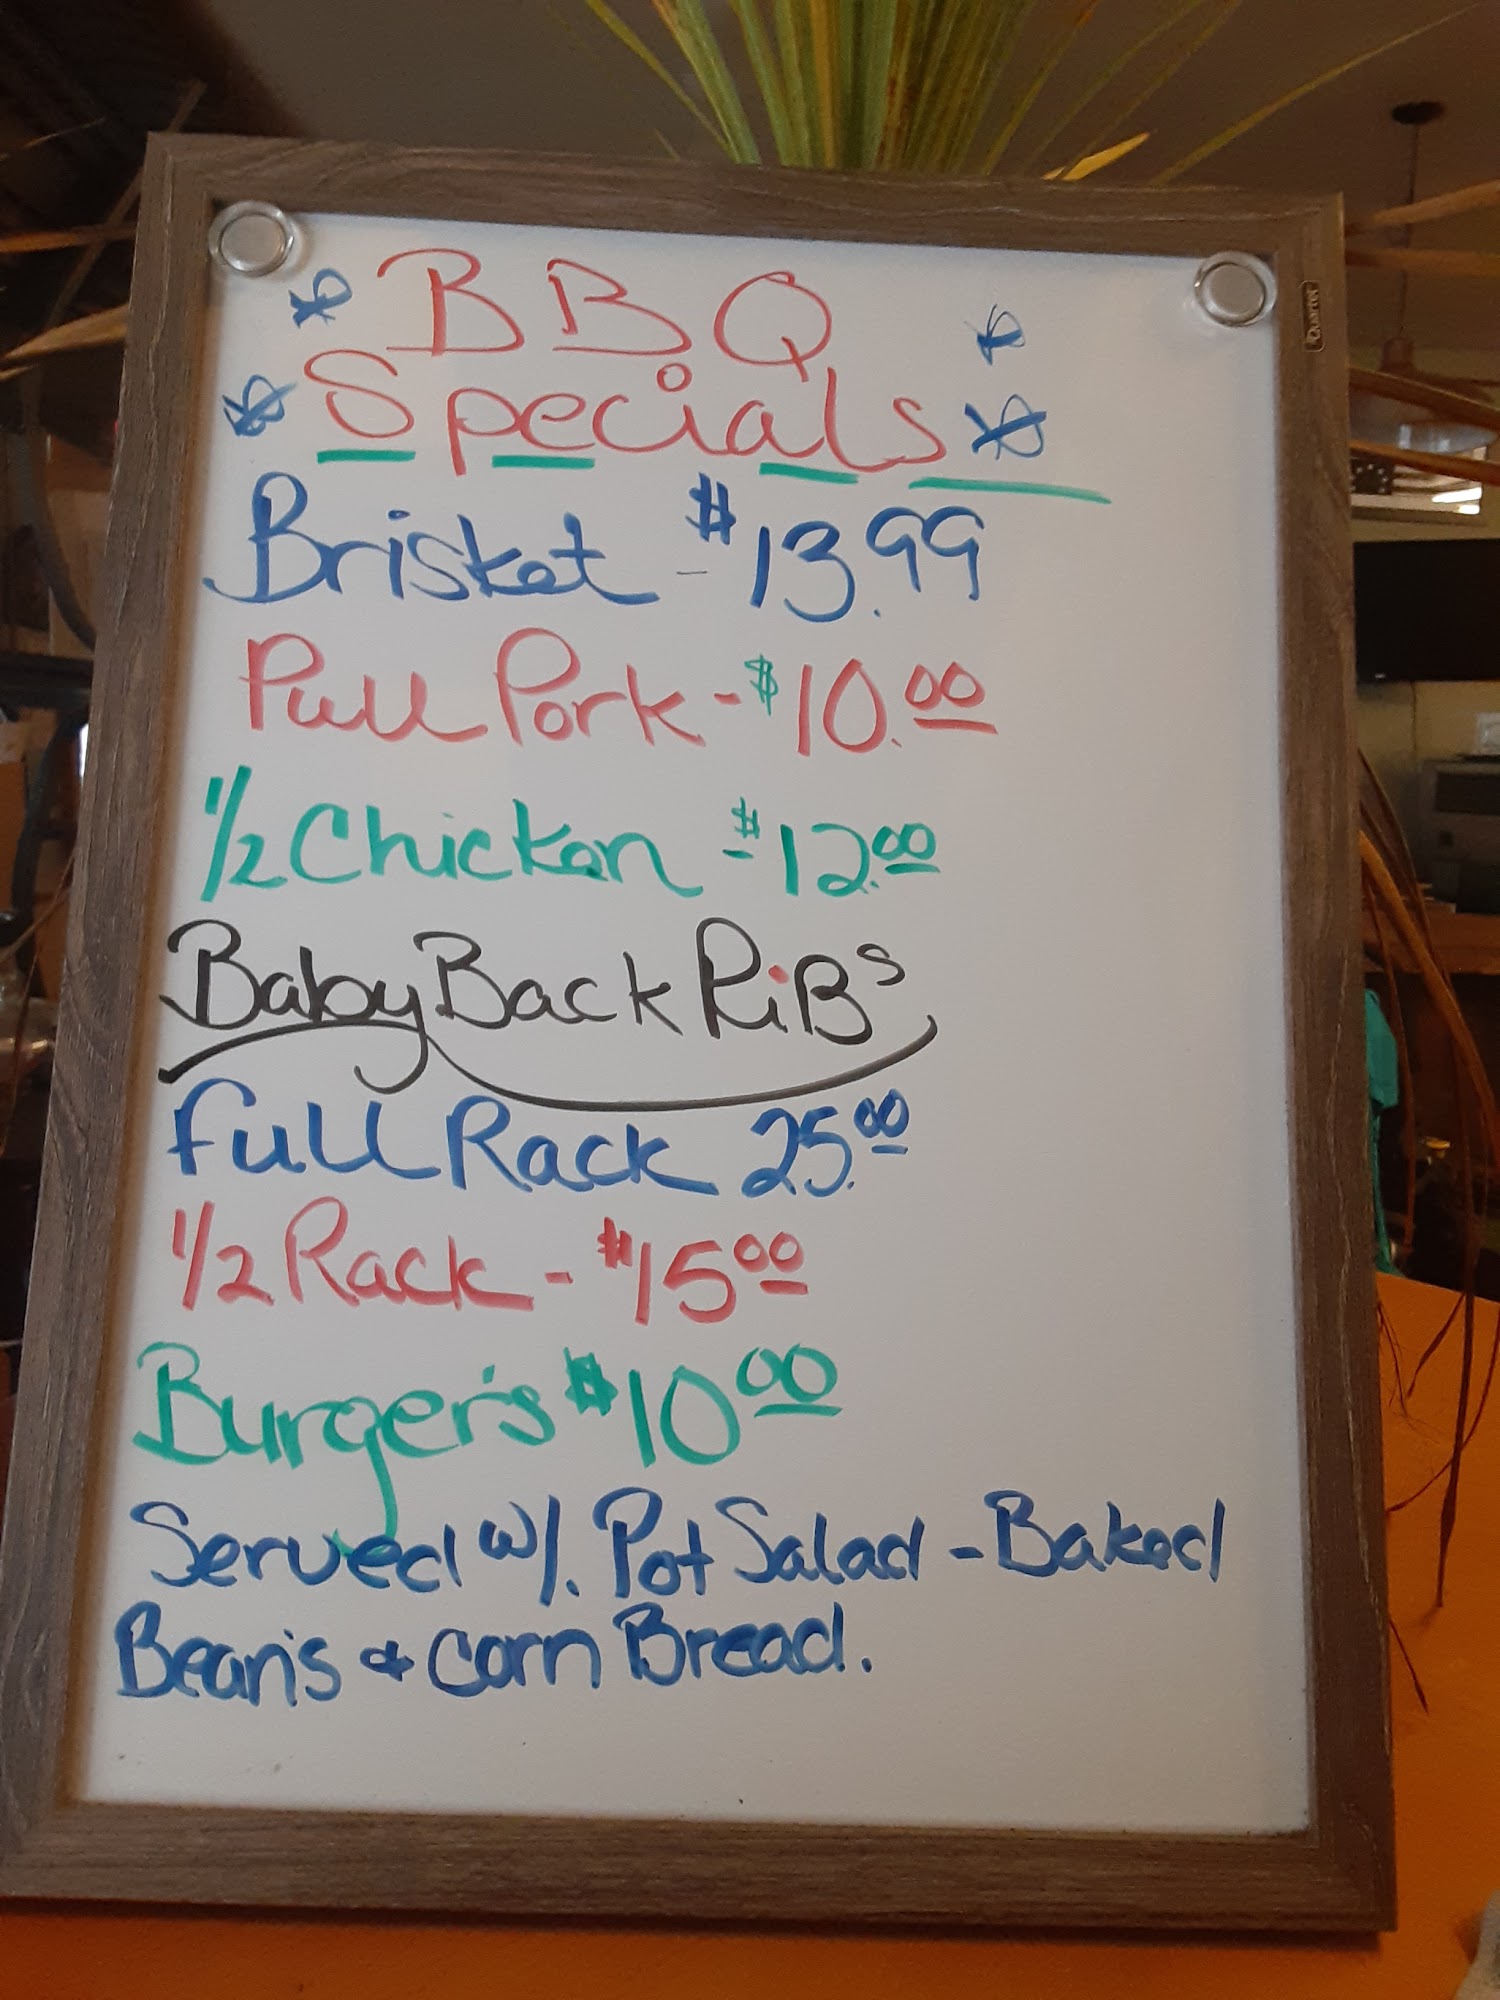 BBQ
Specials
Brisket - $13.99
Pull Pork - $10.00
1/2 Chicken - $12.00
Baby Back RiBs
Full Rack 25.00
1/2 Rack - $15.00
Burger's $10.00
Served w/. Pot Salad - Baked
Bean's & Corn Bread.
Quartet